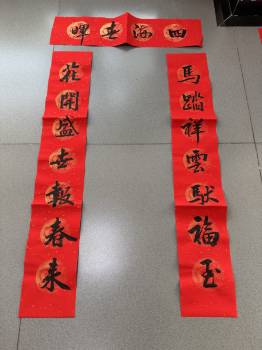 四海生暉
馬踏祥雲馱福至
花開盛世報春来